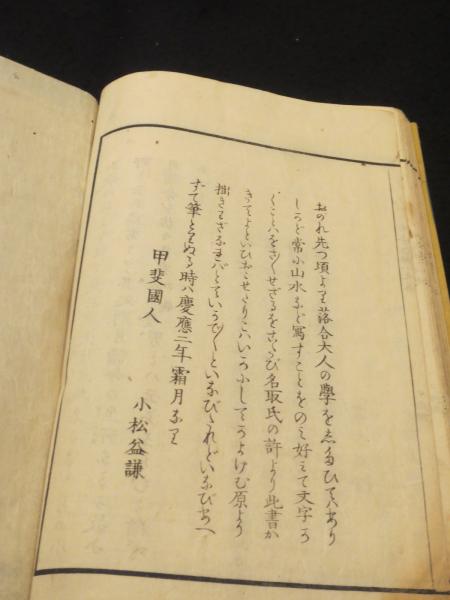 おのれ先つ頃より落合大人の學をしたひてはあり
しかど常に山水など寫すことをのミ好ミて文字か
くことハをさ〳〵せざるをこたび名取氏の許より此書か
きてよといひおこせたりこハいかにしてかよけむ原より
拙きわざなれバとていろひ〳〵といなびつれどいなびあへ
ずて筆とりぬる時ハ慶應二年霜月なり
甲斐國人
小松益謙